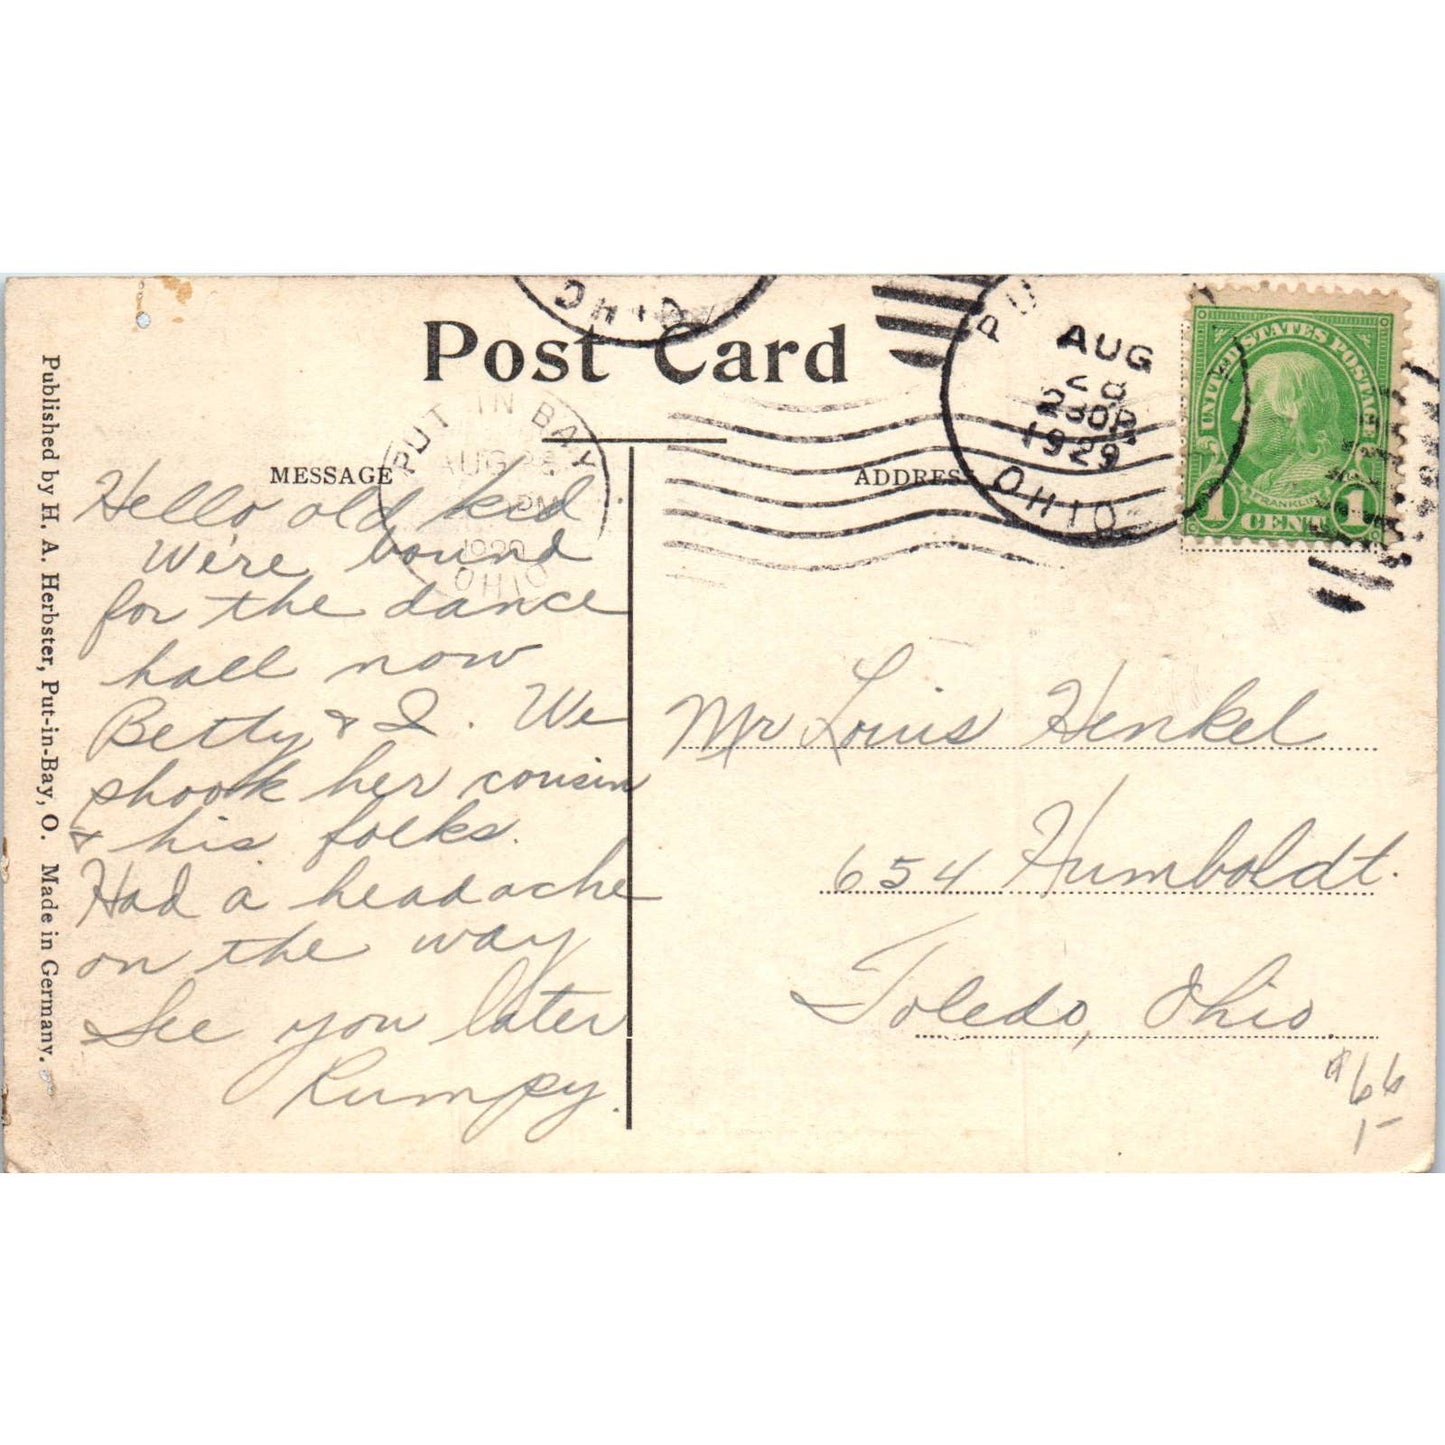 Post Card
MESSAGE
ADDRESS
Published by H. A. Herbster, Put-in-Bay, O. Made in Germany.
OHIO
PUT IN BAY
AUG
PM
OHIO
PU
AUG
28
1929
OHIO
UNITED STATES POSTAGE
FRANKLIN
1 CENT 1
Hello old kid
We're bound
for the dance
hall now
Betty & I. We
shook her cousin
& his folks.
Had a headache
on the way
See you later
Rumpy.
Mr Louis Henkel
654 Humboldt.
Toledo, Ohio.
66
1-